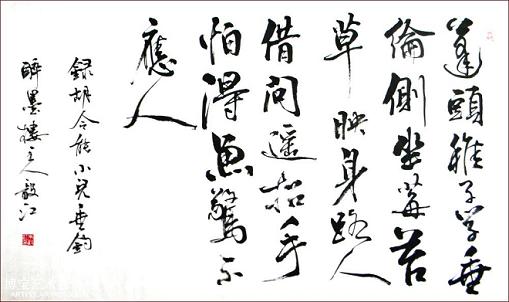 蓬頭稚子学垂
綸側坐莓苔
草映身路人
借问遥招手
怕得魚驚不
應人
録胡令能小兒垂釣
醉墨樓主人毅江